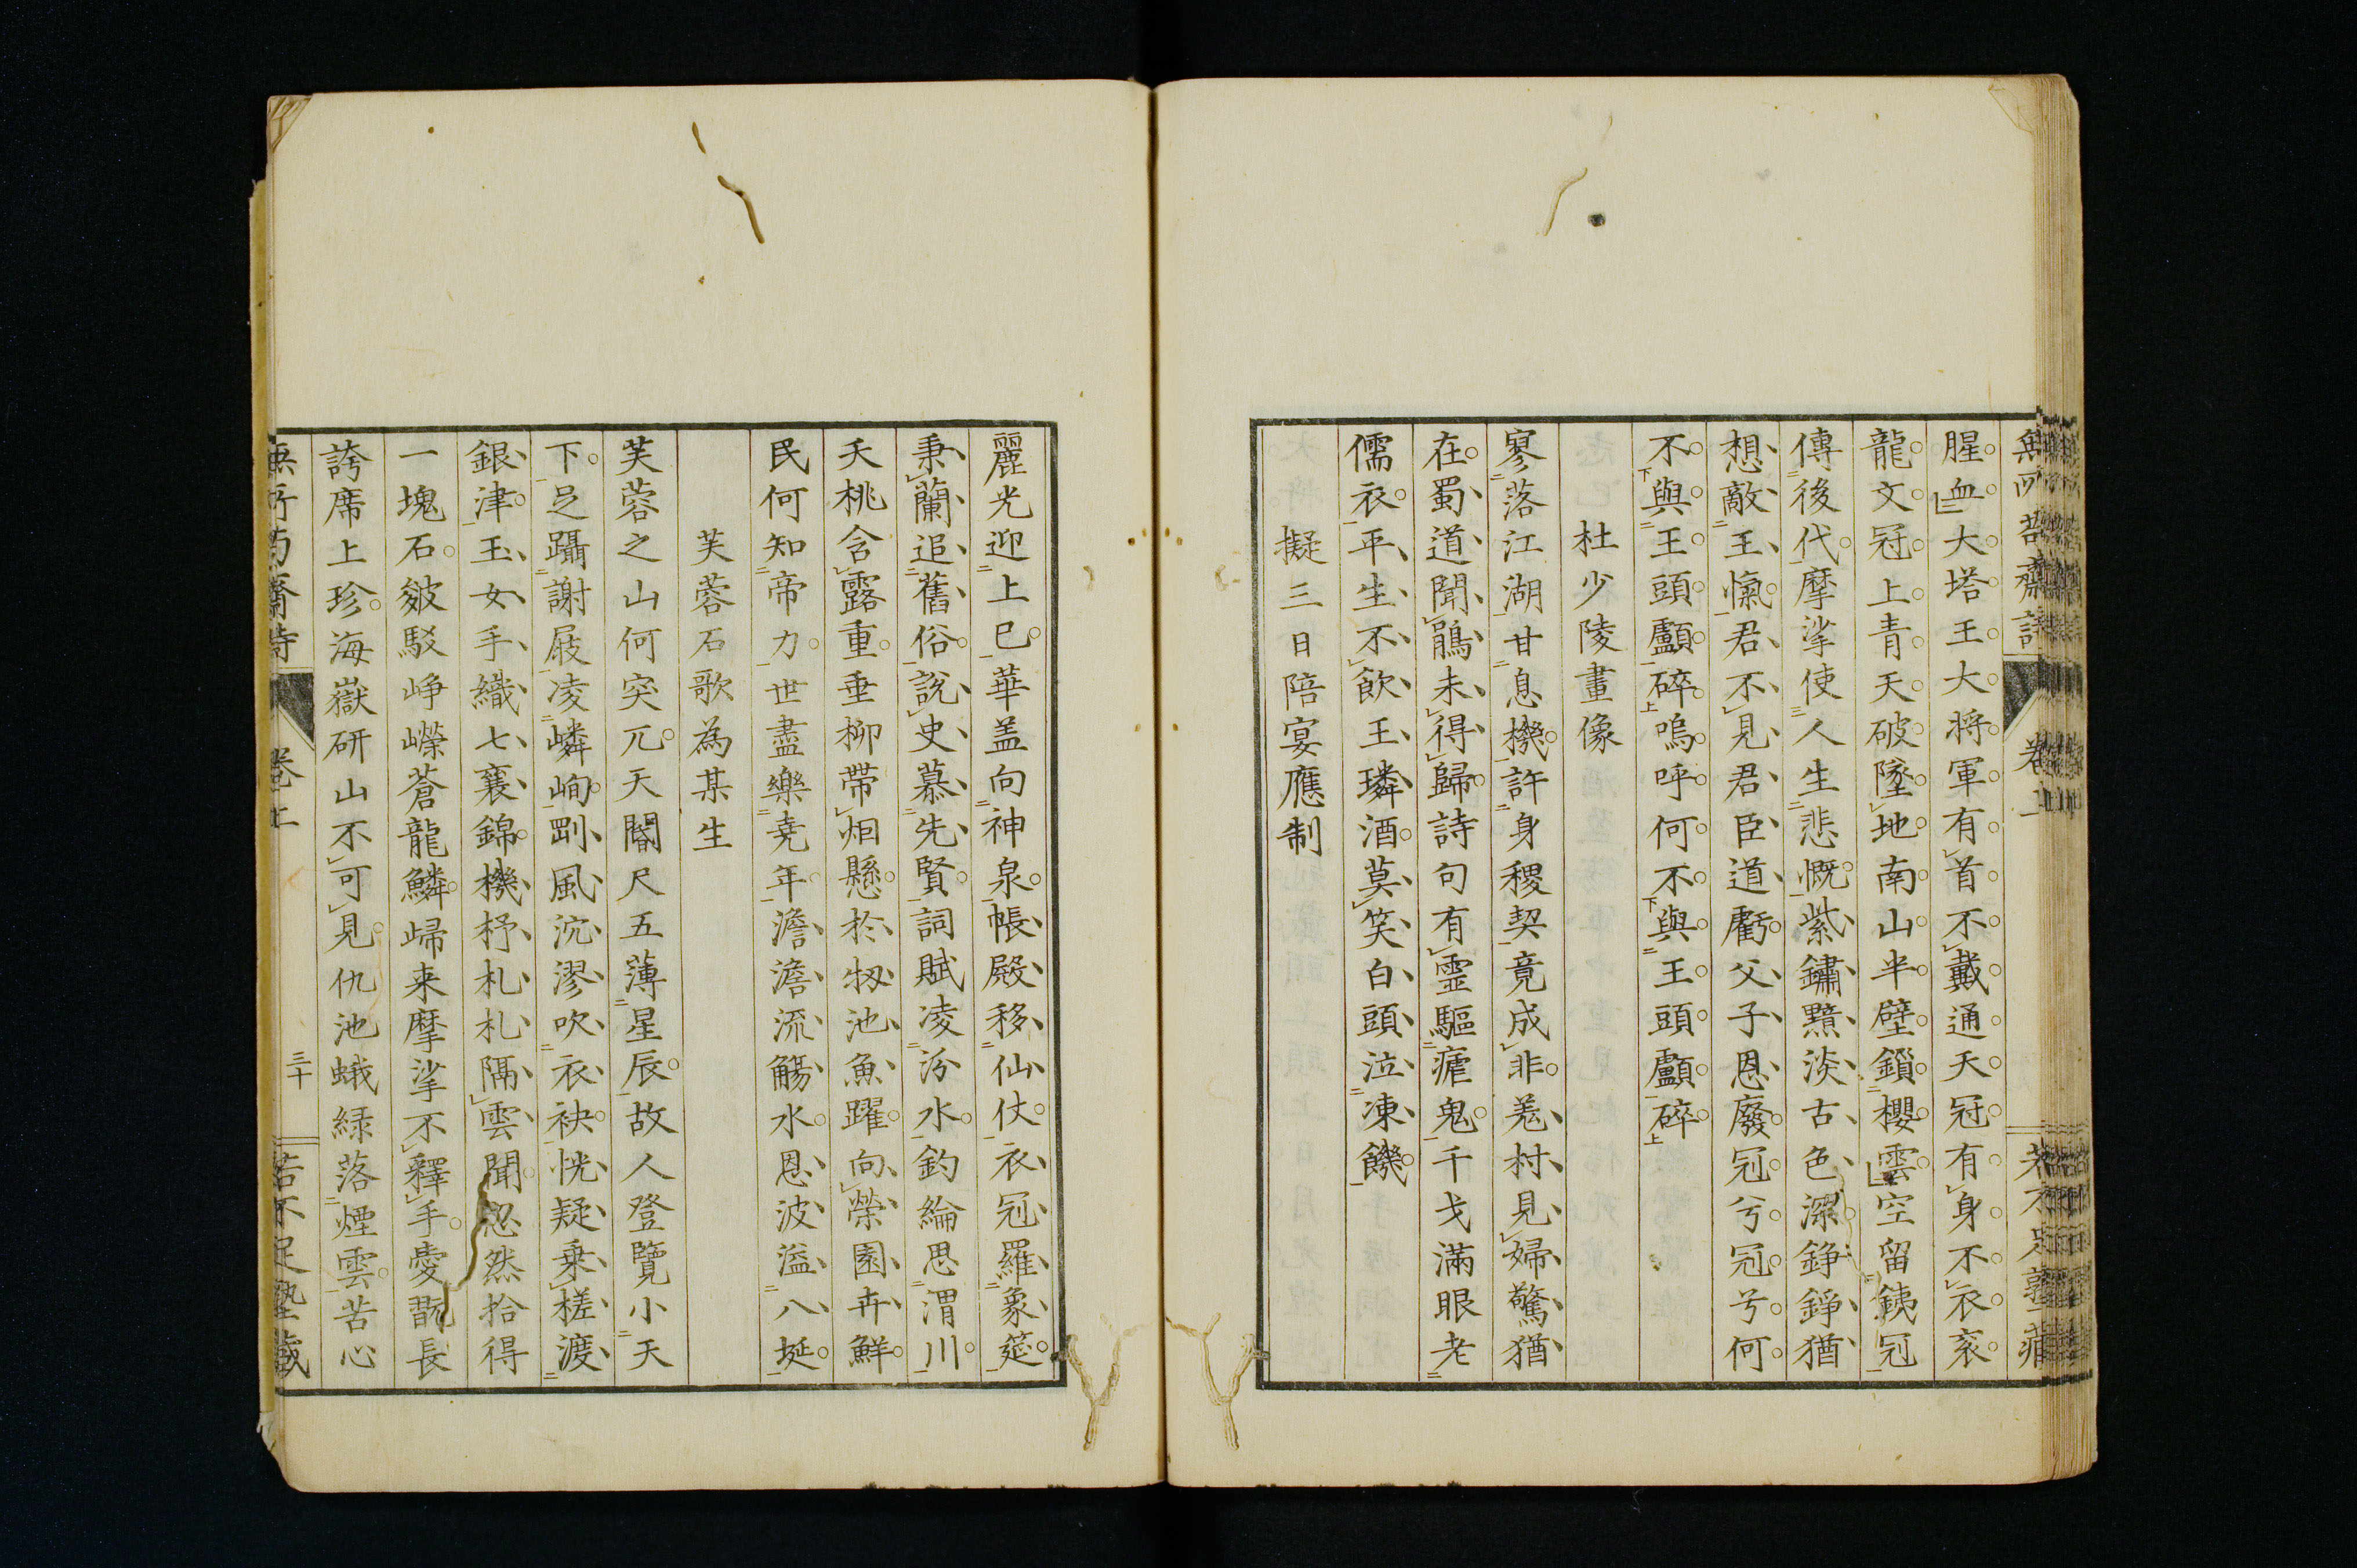 腥血大塔王大将軍有首不戴通天冠有身不衣袞
龍文冠上青天破墜地南山半壁鎖櫻雲空留銕冠
傳後代摩挲使人生悲慨紫鏽黯淡古色深錚錚猶
想敵王愾君不見君臣道虧父子恩廢冠兮冠兮何
不與王頭顱碎嗚呼何不與王頭顱碎
杜少陵畫像
寥落江湖甘息機許身稷契竟成非羗村見婦驚猶
在蜀道聞鵑未得歸詩句有靈驅瘧鬼千戈滿眼老
儒衣平生不飲王璘酒莫笑白頭泣凍饑
擬三日陪宴應制
麗光迎上巳華盖向神泉帳殿移仙仗衣冠羅象筵
秉蘭追舊俗說史慕先賢詞賦凌汾水釣綸思渭川
夭桃含露重垂柳帶烟懸於牣池魚躍向榮園卉鮮
民何知帝力世盡樂堯年澹澹流觴水恩波溢八埏
芙蓉石歌為某生
芙蓉之山何突兀天閽尺五薄星辰故人登覽小天
下足躡謝屐凌嶙峋罡風沆漻吹衣袂恍疑乗槎渡
銀津玉女手織七襄錦機杼札札隔雲聞忽然拾得
一塊石皴駁崢嶸蒼龍鱗歸来摩挲不釋手愛翫長
誇席上珍海嶽研山不可見仇池蛾緑落煙雲苦心
無所苟齋詩 卷上 三十 若不足塾藏